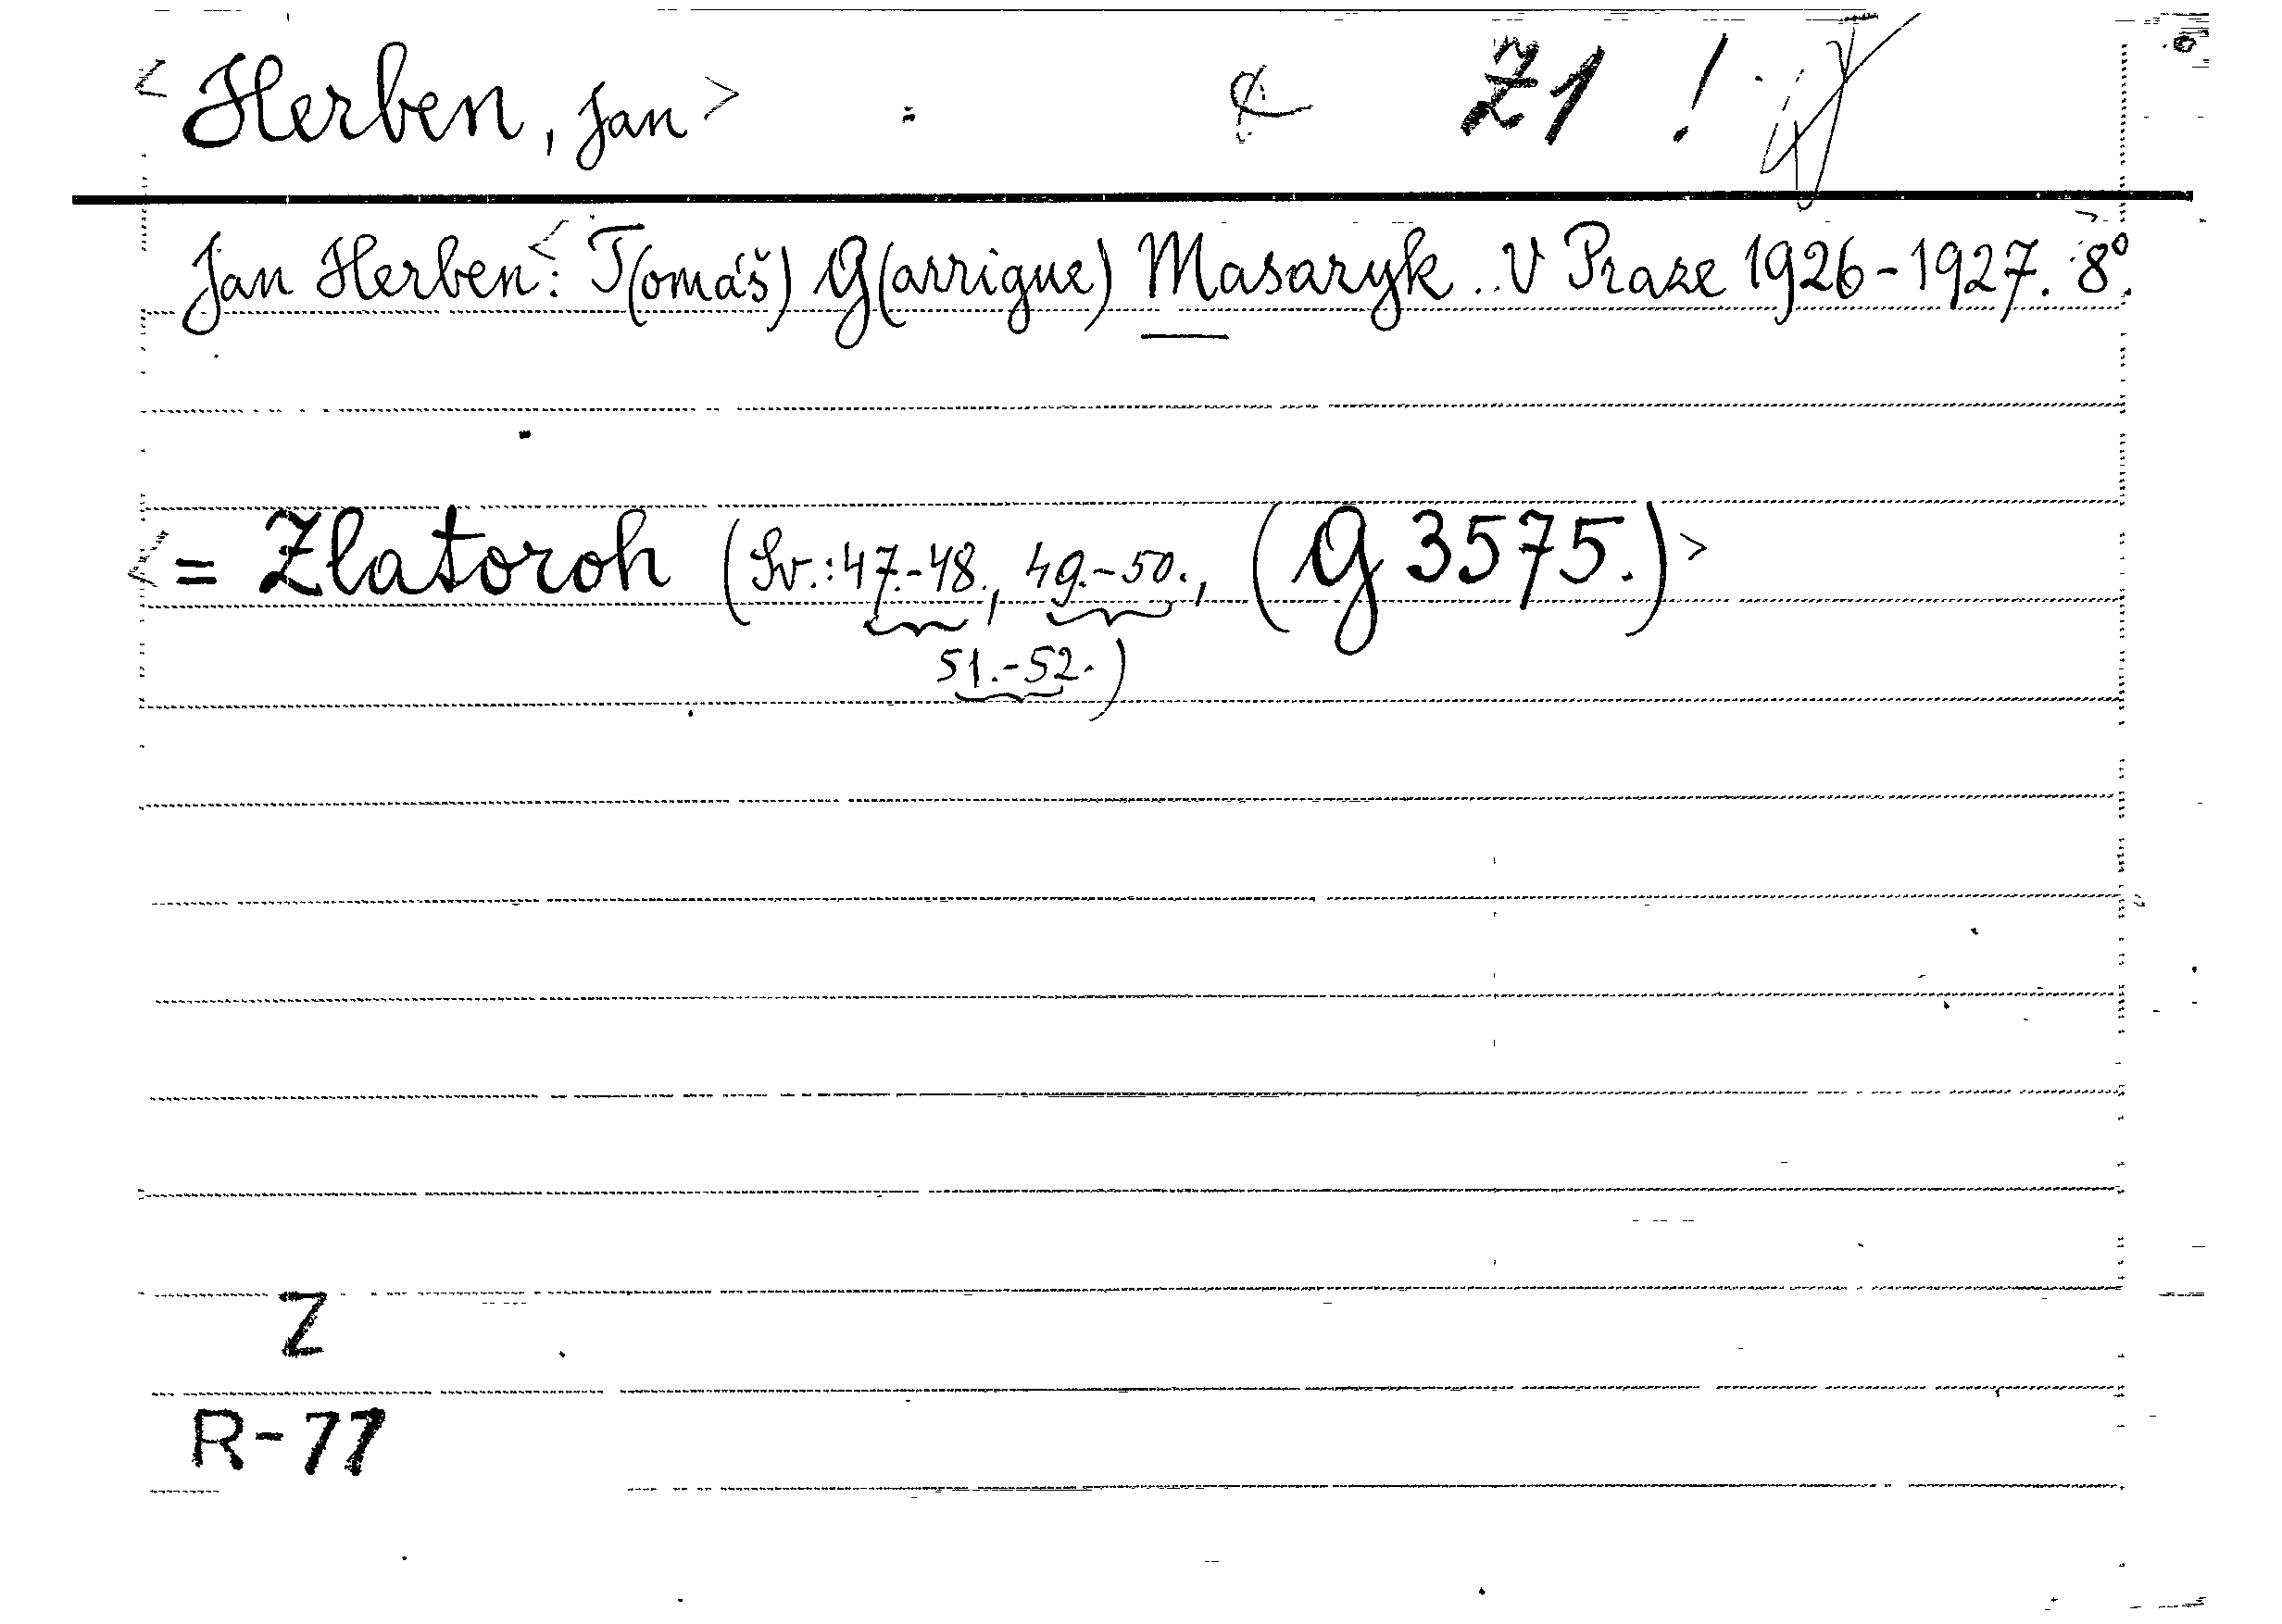 <Herben, Jan> Z1 !
Jan Herben<: T(omáš) G(arrigue) Masaryk. V Praze 1926-1927. 8°.>
<= Zlatoroh (Sv.: 47.-48., 49.-50., (G 3575.)>
51.-52.)
Z
R-77